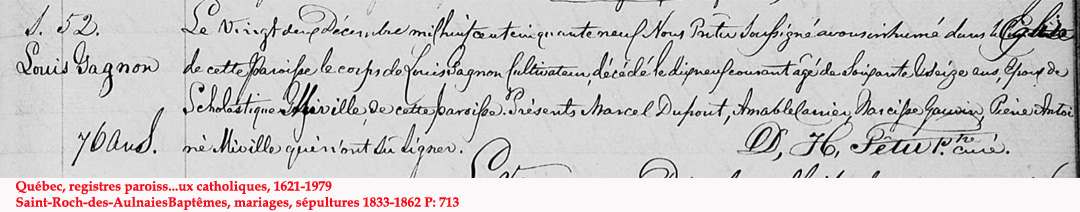 S. 52.
Louis Gagnon
76 ans.
Le vingt deux Décembre mil huit cent cinquante neuf Nous Prêtre Soussigné avons inhumé dans l'Eglise
de cette Paroisse le corps de Louis Gagnon Cultivateur, décédé le dix neuf courant âgé de Soixante & seize ans, Epoux de
Scholastique Miville, de cette paroisse. Présents Marcel Dupont, Amable Lanier, Narcisse Gauvin, Réné Antoi
né Miville qui n'ont su signer. D, H, Têtu Ptre curé.
Québec, registres paroiss...ux catholiques, 1621-1979
Saint-Roch-des-AulnaiesBaptêmes, mariages, sépultures 1833-1862 P: 713